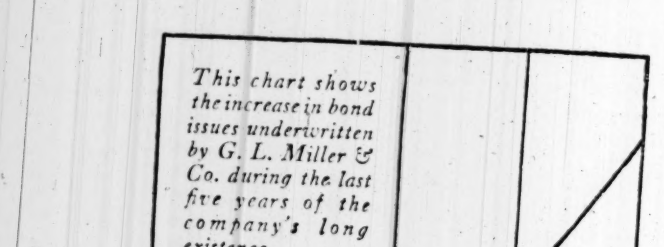 This chart shows
the increase in bond
issues underwritten
by G. L. Miller &
Co. during the last
five years of the
company's long
existence